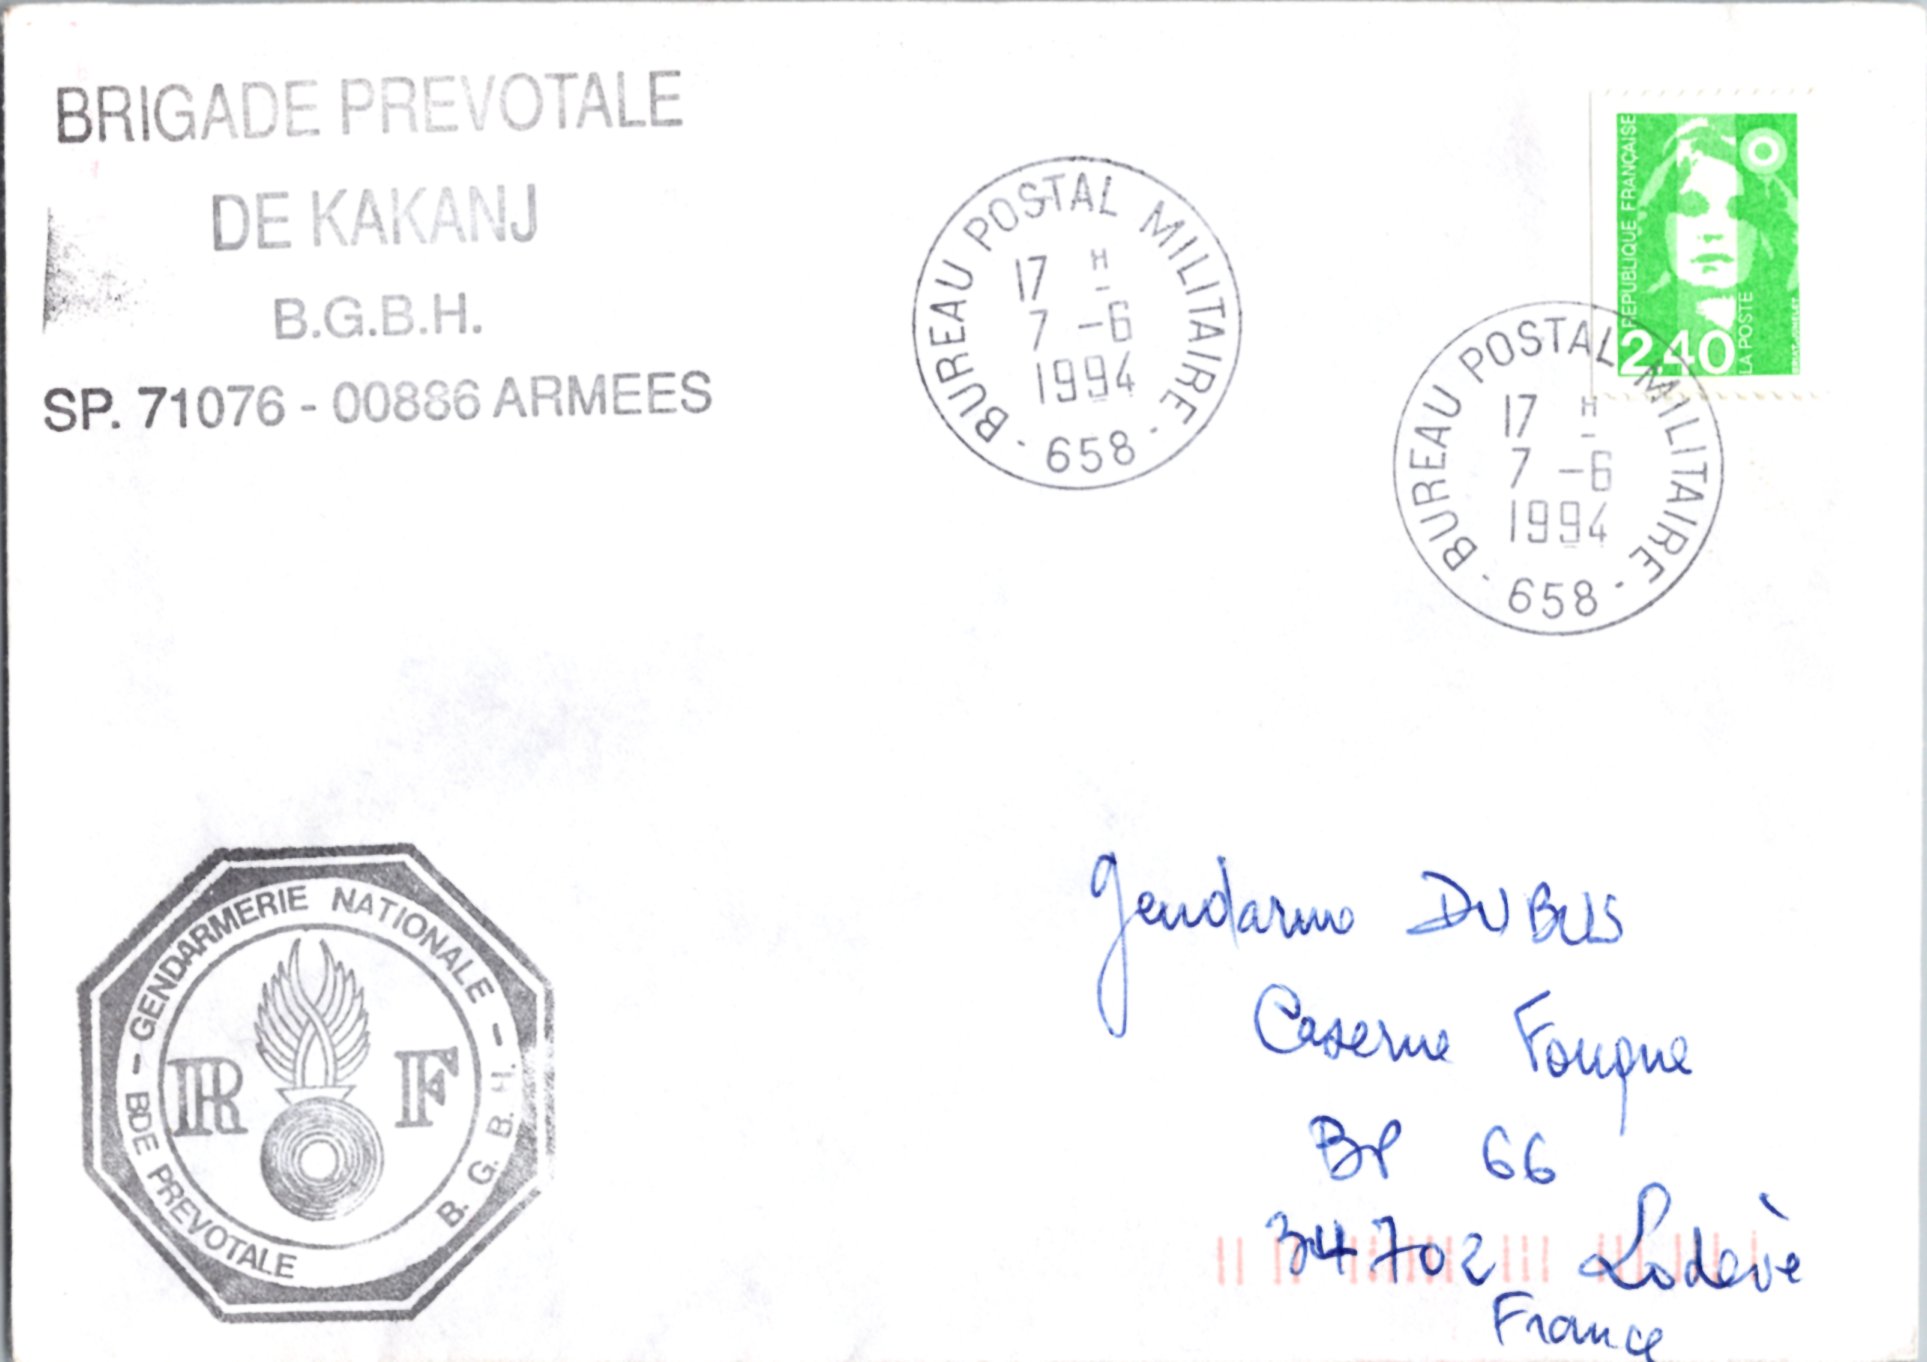 BRIGADE PREVOTALE
DE KAKANJ
B.G.B.H.
SP. 71076 - 00886 ARMEES
- BUREAU POSTAL MILITAIRE -
17 H
7 -6
1994
658
REPUBLIQUE FRANÇAISE
2,40
LA POSTE
- BUREAU POSTAL MILITAIRE -
17 H
7 -6
1994
658
- GENDARMERIE NATIONALE -
RF
BDE PREVOTALE B. G. B. H.
Gendarme DUBUS
Caserne Fougue
BP 66
34702 Lodève
France